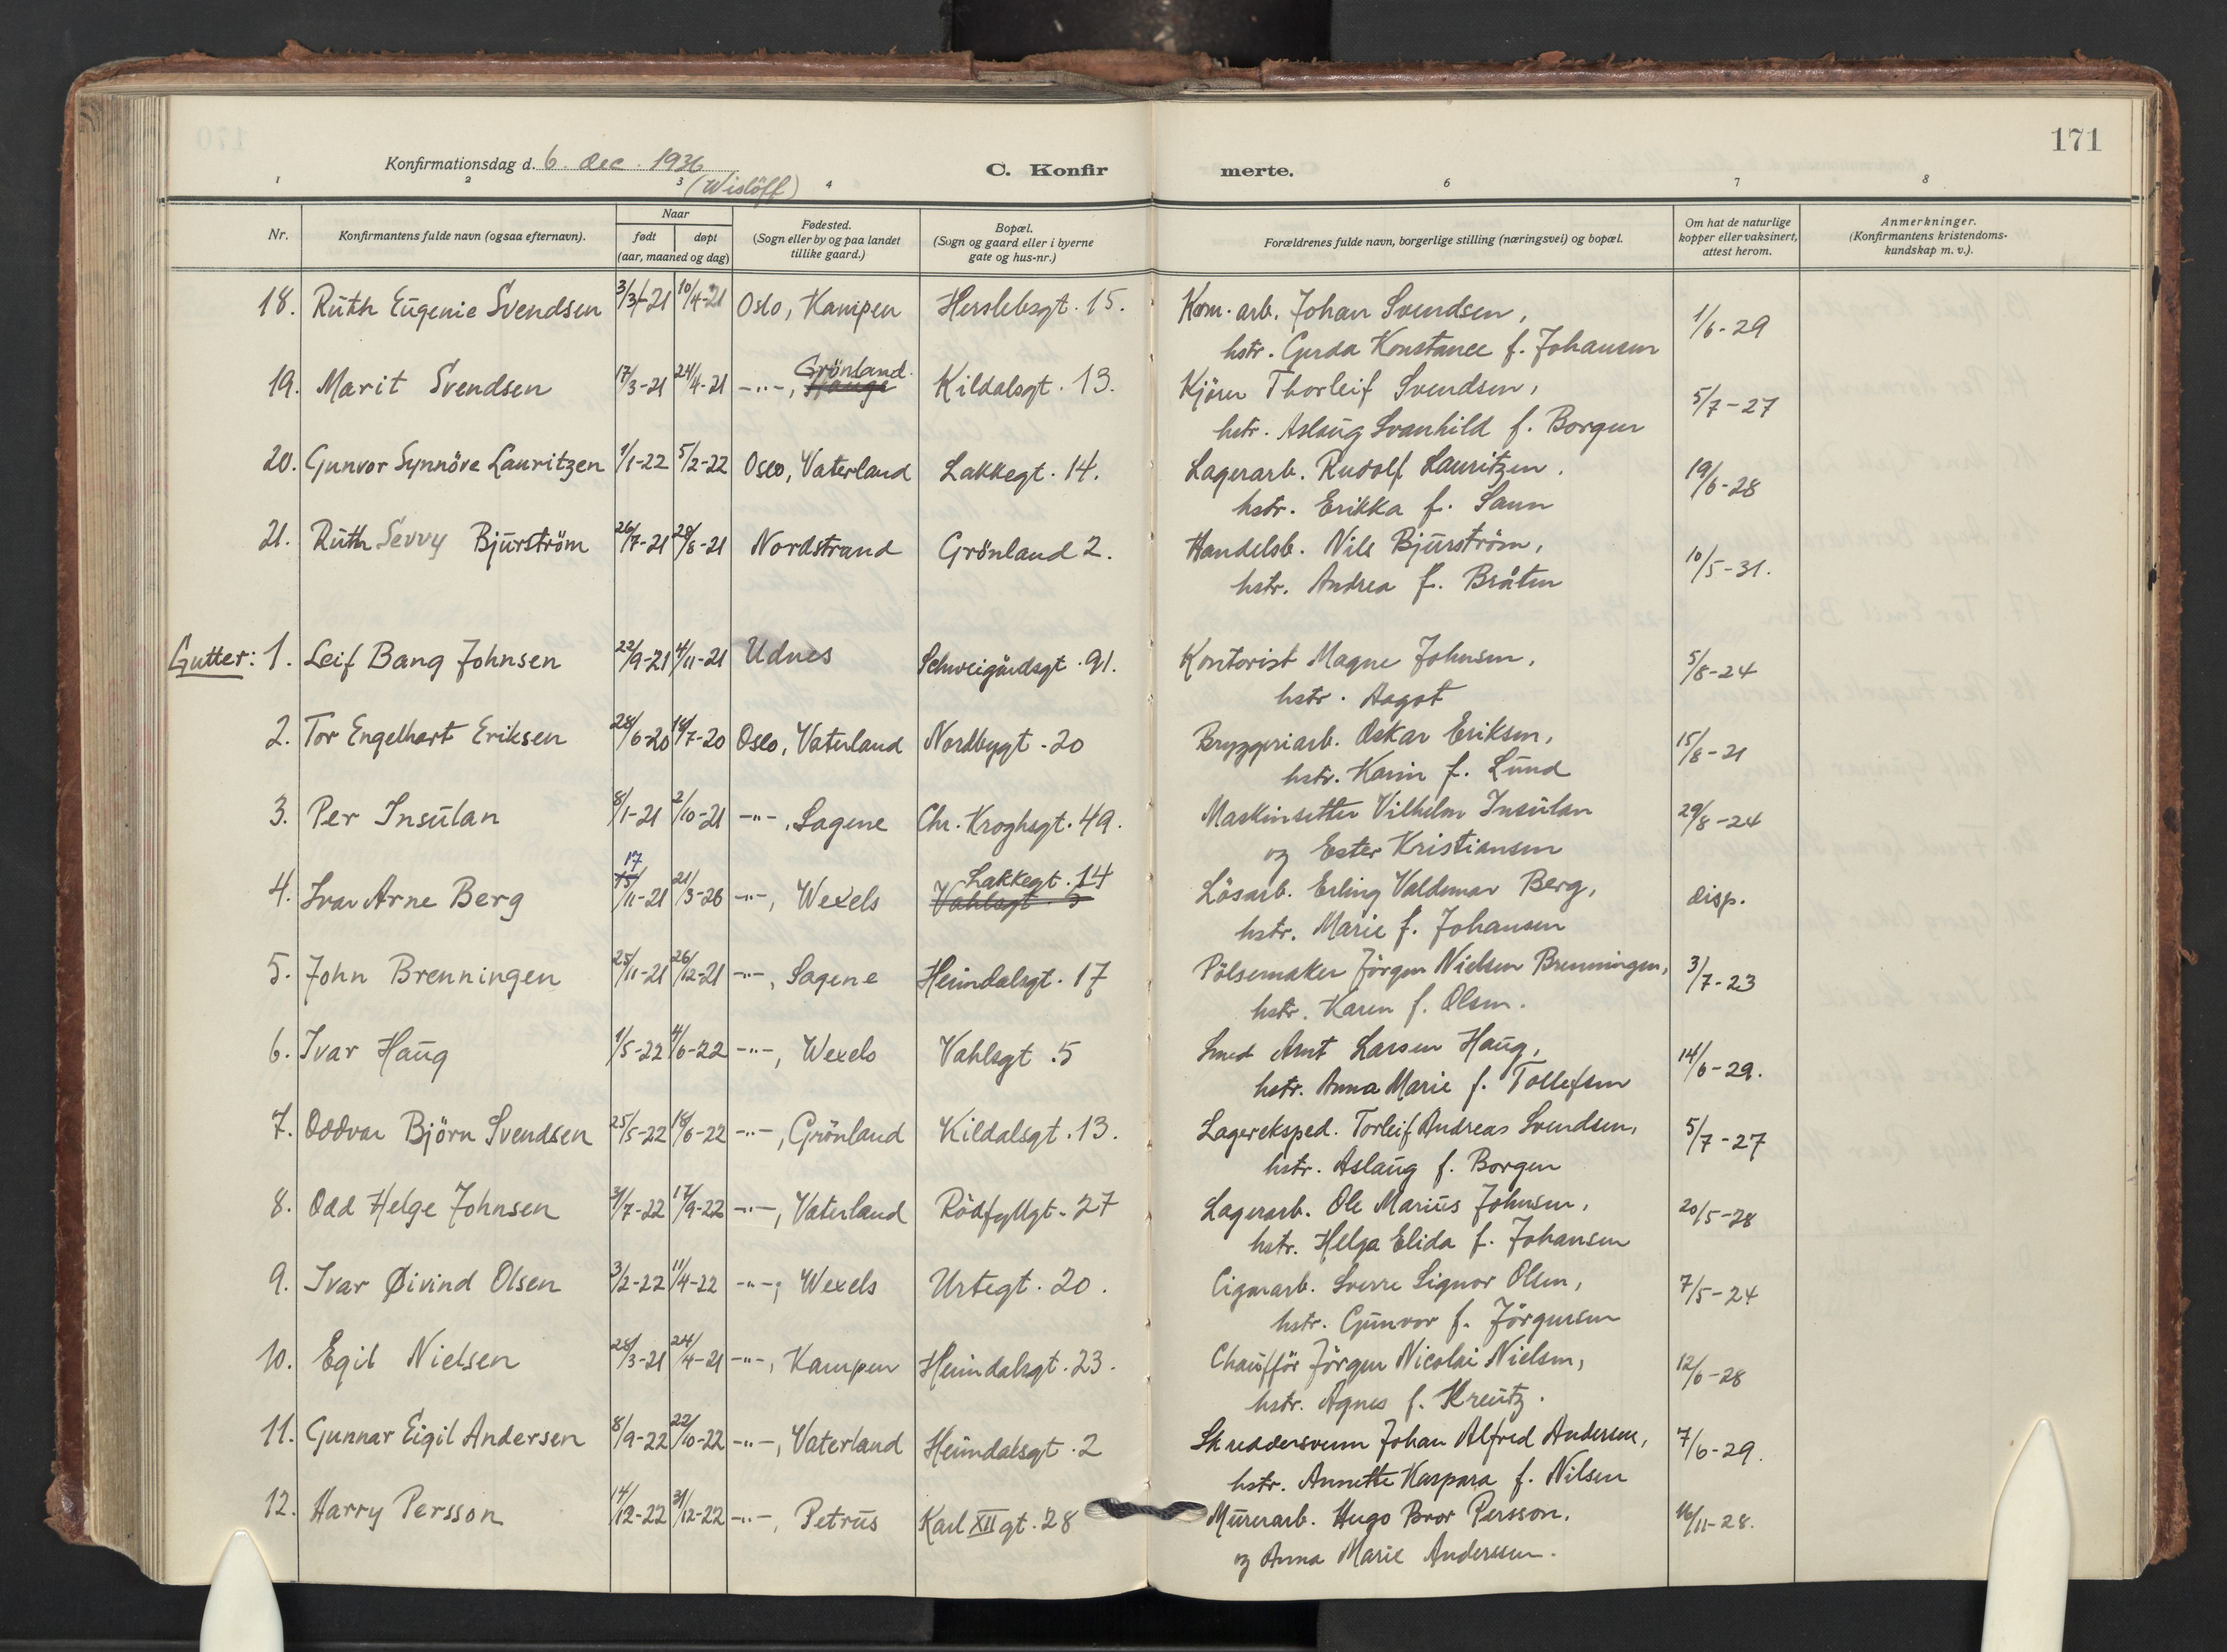 171
Konfirmationsdag d. 6. dec. 1936
(Wislöff)
C. Konfir merte.
1 2 3 4 6 7 8
Nr.
Konfirmantens fulde navn (ogsaa efternavn).
Naar
født døpt
(aar, maaned og dag)
Fødested.
(Sogn eller by og paa landet
tillike gaard.)
Bopæl.
(Sogn og gaard eller i byerne
gate og hus-nr.)
Forældrenes fulde navn, borgerlige stilling (næringsvei) og bopæl.
Om hat de naturlige
kopper eller vaksinert,
attest herom.
Anmerkninger.
(Konfirmantens kristendoms-
kundskap m. v.).
18. Ruth Eugenie Svendsen 3/3-21 10/4-21 Oslo, Kampen Herslebsgt. 15. Kom. arb. Johan Svendsen, 1/6-29
hstr. Gerda Konstance f. Johansen
Grönland.
19. Marit Svendsen 17/3-21 24/4-21 -"-, Hauge Kildalsgt. 13. Kjörer Thorleif Svendsen, 5/7-27
hstr. Aslaug Svanhild f. Borgen
20. Gunvor Synnöve Lauritzen 1/1-22 5/2-22 Oslo, Vaterland Lakkegt. 14. Lagerarb. Rudolf Lauritzen. 19/6-28
hstr. Erikka f. Saun
21. Ruth Sevvy Bjurström 26/7-21 28/8-21 Nordstrand Grönland 2. Handelsb. Nils Bjurström, 10/5-31.
hstr. Andrea f. Bråten
Gutter: 1. Leif Bang Johnsen 22/9-21 4/11-21 Udnes Schweigårdsgt. 91. Kontorist Magne Johnsen, 5/8-24
hstr. Aagot
2. Tor Engelhart Eriksen 28/6-20 18/7-20 Oslo, Vaterland Nordbygt. 20 Bryggeriarb. Oskar Eriksen, 15/8-21
hstr. Karin f. Lund
3. Per Insulan 8/1-21 2/10-21 -"-, Sagene Chr. Kroghsgt. 49. Maskinsetter Vilhelm Insulan 29/8-24
og Ester Kristiansen
17 Lakkegt. 14
4. Ivar Arne Berg 15/11-21 21/3-26 -"-, Wexels Vahlsgt. 5 Lösarb. Erling Valdemar Berg, disp.
hstr. Marie f. Johansen
5. John Brenningen 25/11-21 26/12-21 -"-, Sagene Heimdalsgt. 17 Pölsemaker Jörgen Nielsen Brenningen, 3/7-23
hstr. Karen f. Olsen.
6. Ivar Haug 1/5-22 4/6-22 -"-, Wexels Vahlsgt. 5 Smed Arnt Larsen Haug, 14/6-29.
hstr. Anna Marie f. Tollefsen
7. Oddvar Björn Svendsen 25/5-22 18/6-22 -"-, Grönland Kildalsgt. 13. Lagereksped. Torleif Andreas Svendsen, 5/7-27
hstr. Aslaug f. Borgen
8. Odd Helge Johnsen 31/7-22 17/9-22 -"-, Vaterland Rödfyllgt. 27 Lagerarb. Ole Marius Johnsen, 20/5-28
hstr. Helga Elida f. Johansen
9. Ivar Øivind Olsen 3/2-22 11/4-22 -"-, Wexels Urtegt. 20. Cigararb. Sverre Signor Olsen, 7/5-24
hstr. Gunvor f. Jörgensen
10. Egil Nielsen 28/3-21 24/4-21 -"-, Kampen Heimdalsgt. 23. Chaufför Jörgen Nicolai Nielsen, 12/6-28
hstr. Agnes f. Kreutz.
11. Gunnar Eigil Andersen 8/9-22 22/10-22 -"-, Vaterland Heimdalsgt. 2 Skreddersvenn Johan Alfred Andersen, 7/6-29.
hstr. Annette Kaspara f. Nilsen
12. Harry Persson 14/12-22 31/12-22 -"-, Petrus Karl XII gt. 28 Murerarb. Hugo Bror Persson. 16/11-28.
og Anna Marie Andersen.